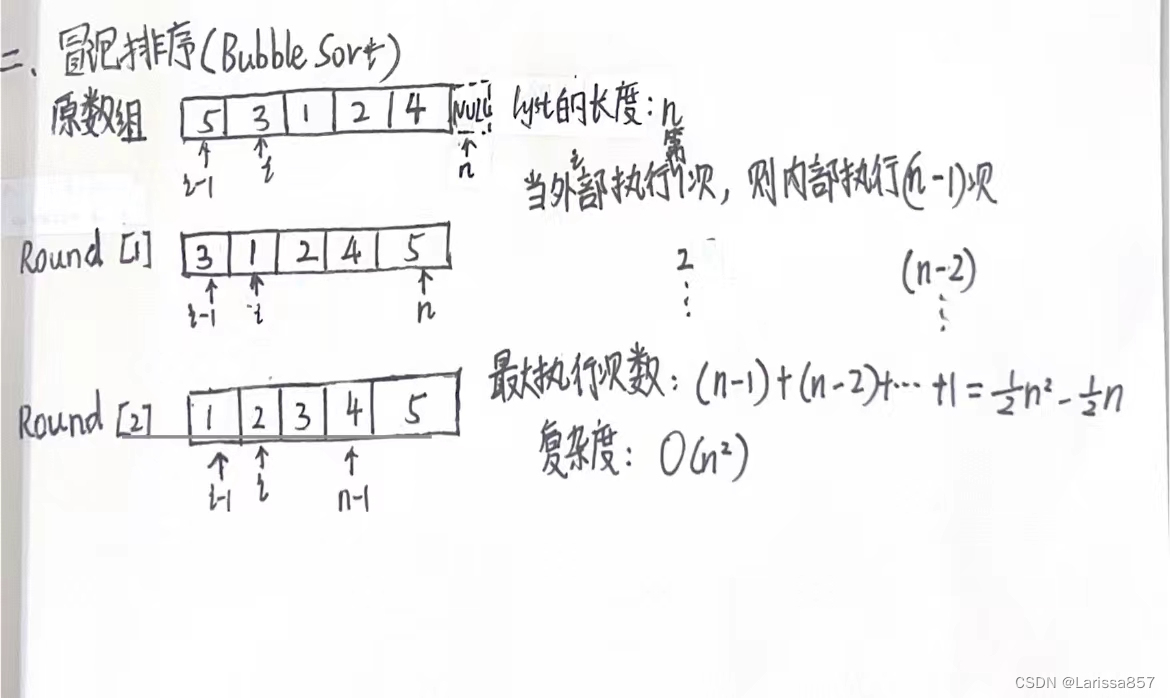 二、冒泡排序(Bubble Sort)
原数组 5 3 1 2 4 NULL lyst的长度: n
i-1 i n
当外部执行第1次, 则内部执行(n-1)次
Round [1] 3 1 2 4 5
2 (n-2)
i-1 i n
⋮ ⋮
最大执行次数: (n-1)+(n-2)+…+1=½n²-½n
Round [2] 1 2 3 4 5
复杂度: O(n²)
i-1 i n-1
CSDN @Larissa857